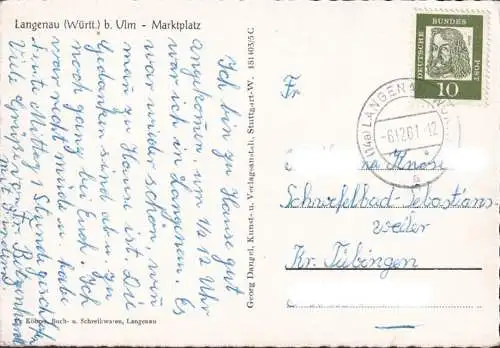 Langenau (Württ.) b. Ulm - Marktplatz
Ich bin zu Hause gut
angekommen, um ½ 12 Uhr
war ich in Langenau. Es
war wieder schön, wenn
man zu Hause ist. Die
Gedanken sind aber zu
noch ganz bei Euch. Ich
war recht müde u. habe
heute Mittag 1 Stunde geschlafen
Viele Grüße
mit
Köhler, Buch- u. Schreibwaren, Langenau
Georg Dangel, Kunst- u. Verlagsanstalt, Stuttgart-W. 151 403/5 C
DEUTSCHE BUNDES POST
10
(14a) LANGENAU (WÜRTT)
-6.12.61.-12
a
Fr
na Knöse
Schwefelbad-Sebastians-
weiler
Kr. Tübingen